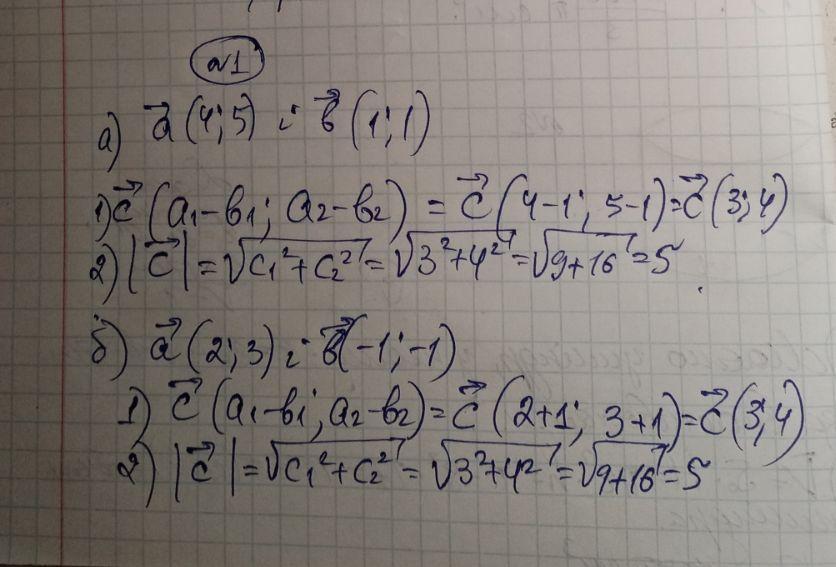 №1
а) a⃗ (4; 5) і b⃗ (1; 1)
1) c⃗ (a₁-b₁; a₂-b₂) = c⃗ (4-1; 5-1)=c⃗ (3; 4)
2) |c⃗| = √(c₁²+c₂²) = √(3²+4²) = √(9+16) = 5
б) a⃗ (2; 3) і b⃗ (-1; -1)
1) c⃗ (a₁-b₁; a₂-b₂) = c⃗ (2+1; 3+1)=c⃗ (3; 4)
2) |c⃗| = √(c₁²+c₂²) = √(3²+4²) = √(9+16) = 5